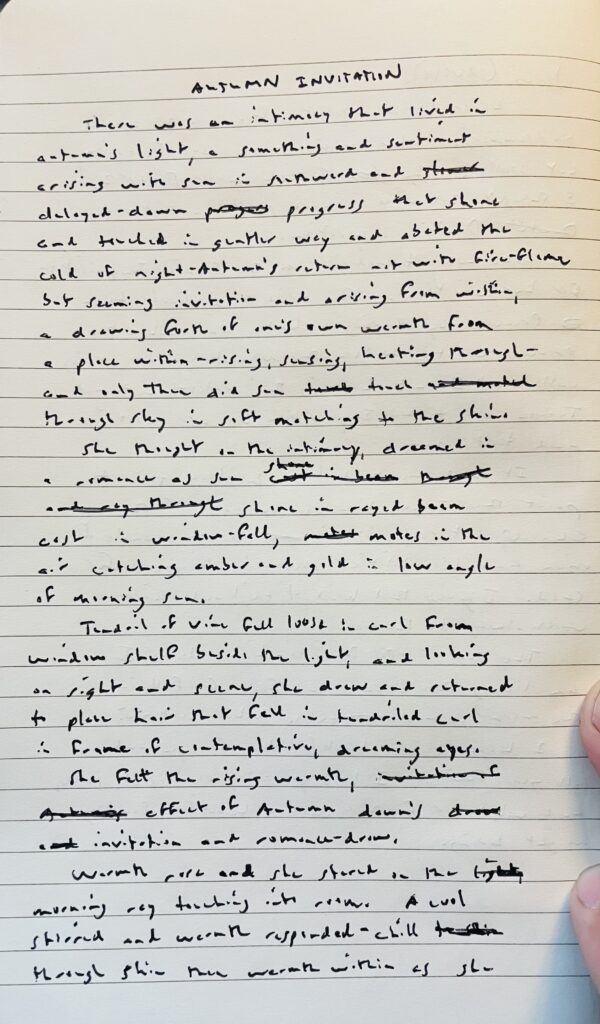 AUTUMN INVITATION
There was an intimacy that lived in
autumn's light, a something and sentiment
arising with sun in southward and
delayed-dawn progress that shone
and touched in gentler way and abated the
cold of night-Autumn's return not with fire-flame
but seeming invitation and arising from within,
a drawing forth of one's own warmth from
a place within-rising, sensing, heating through-
and only then did sun touch
through sky in soft matching to the skin.
She thought on the intimacy, dreamed in
a romance as sun shone
shone in rayed beam
cast in window-fall, motes in the
air catching amber and gold in low angle
of morning sun.
Tendril of vine fell loose in curl from
window shelf beside the light, and looking
on sight and scene, she drew and returned
to place hair that fell in tendriled curl
in frame of contemplative, dreaming eyes.
She felt the rising warmth,
effect of Autumn dawn's
invitation and romance-draw.
Warmth rose and she stared on the
morning ray touching into room. A cool
stirred and warmth responded-chill
through skin then warmth within as she